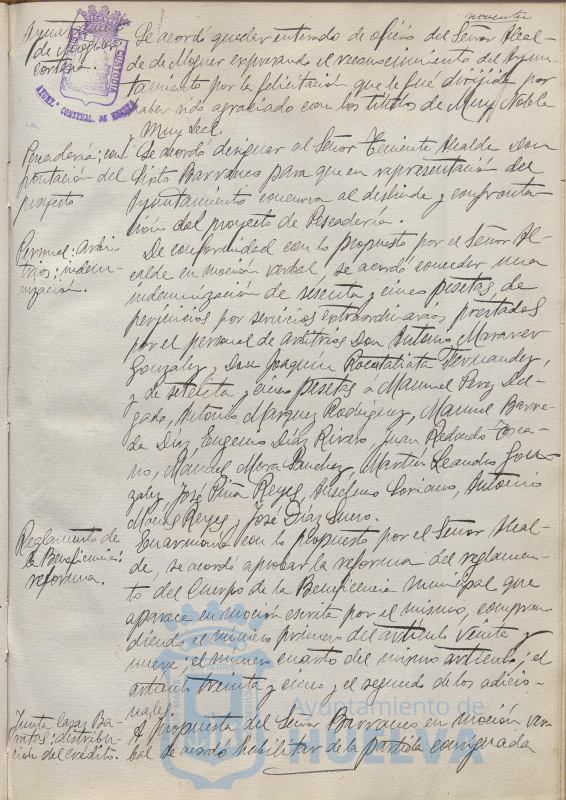 noventa
Ayuntamiento
de Moguer:
cortesía.
AYUNT. CONSTNAL. DE HUELVA
CUSTODIA
Se acordó quedar enterado de oficio del Señor Alcal-
de de Moguer expresando el reconocimiento del Ayun-
tamiento por la felicitación que le fué dirigida por
haber sido agraciado con los títulos de Muy Noble
Muy Leal.
Pescadería: con-
frontación del
proyecto
Se acordó designar al Señor Teniente Alcalde Don
Sixto Barranco para que en representación del
Ayuntamiento concurra al deslinde y confronta-
ción del proyecto de Pescadería.
Personal: Arbi-
trios: indem-
nización.
De conformidad con lo propuesto por el Señor Al-
calde en moción verbal, se acordó conceder una
indemnización de sesenta y cinco pesetas de
perjuicios por servicios extraordinarios prestados
por el personal de arbitrios Don Antonio Maraver
Gonzalez, Don Joaquín Fernandez,
y de setenta y cinco pesetas a Manuel Perez Del-
gado, Antonio Marquez Rodriguez, Manuel Barre-
da Díaz, Eugenio Díaz Rivero, Juan Redondo Tosca-
no, Manuel Mora Sanchez, Martín Leandro Gon-
zalez José Piña Reyes, Anselmo Soriano, Antonio
Macías Reyes, José Díaz Suero.
Reglamento de
la Beneficencia:
reforma.
En armonía con lo propuesto por el Señor Alcal-
de, se acordó aprobar la reforma del reglamen-
to del Cuerpo de la Beneficencia municipal que
aparece en moción escrita por el mismo, compren-
diendo el número primero del artículo veinte y
nueve; el número cuarto del mismo artículo; el
artículo treinta y cinco y el segundo de los adicio-
nales.
Junta Casas Ba-
ratas: distribu-
ción del crédito.
A propuesta del Señor Barranco en moción ver-
bal se acordó habilitar de la partida consignada
Ayuntamiento de
HUELVA